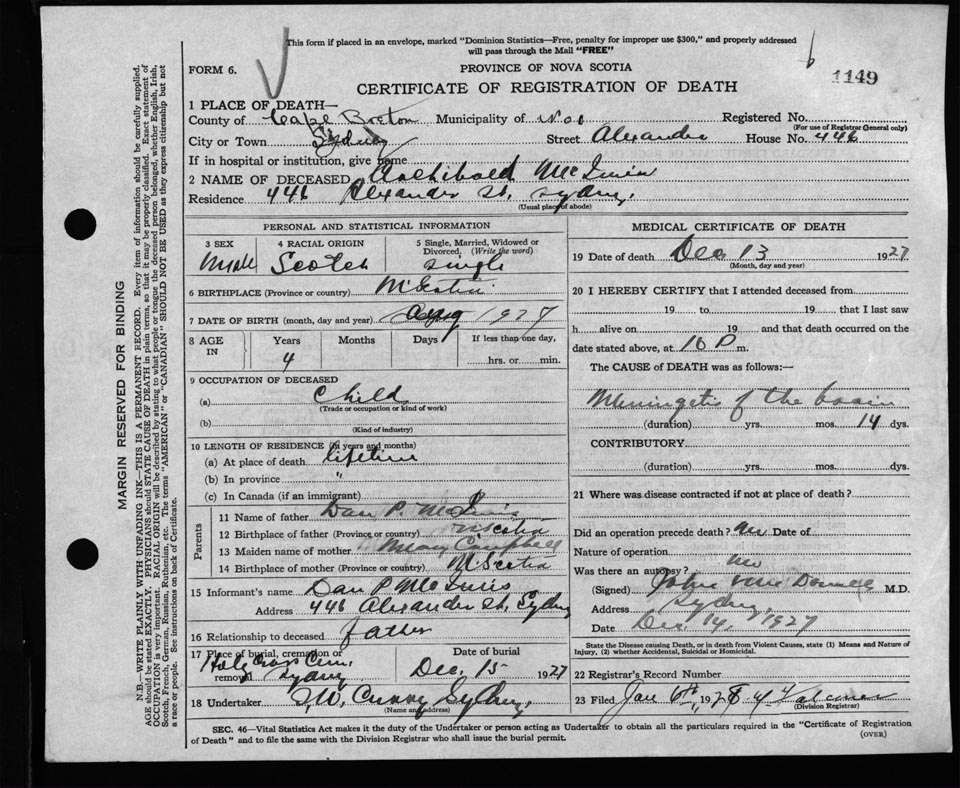 This form if placed in an envelope, marked "Dominion Statistics—Free, penalty for improper use $300," and properly addressed
will pass through the Mail "FREE"
FORM 6.
PROVINCE OF NOVA SCOTIA
1149
CERTIFICATE OF REGISTRATION OF DEATH
1 PLACE OF DEATH—
County of Cape Breton Municipality of Registered No.
(For use of Registrar General only)
City or Town Sydney Street Alexander House No. 446
If in hospital or institution, give name
2 NAME OF DECEASED Archibald McInnis
Residence 446 Alexander St, Sydney,
(Usual place of abode)
PERSONAL AND STATISTICAL INFORMATION
3 SEX 4 RACIAL ORIGIN 5 Single, Married, Widowed or Divorced. (Write the word)
Male Scotch single
6 BIRTHPLACE (Province or country) N Scotia
7 DATE OF BIRTH (month, day and year) 1927
8 AGE IN Years Months Days If less than one day,
4 hrs. or min.
9 OCCUPATION OF DECEASED
(a) Child
(Trade or occupation or kind of work)
(b)
(Kind of industry)
10 LENGTH OF RESIDENCE (in years and months)
(a) At place of death lifetime
(b) In province "
(c) In Canada (if an immigrant)
Parents
11 Name of father Dan P. McInnis
12 Birthplace of father (Province or country) N Scotia
13 Maiden name of mother Mary Campbell
14 Birthplace of mother (Province or country) N Scotia
15 Informant's name Dan P McInnis
Address 446 Alexander St, Sydney
16 Relationship to deceased father
17 Place of burial, cremation or removal Date of burial
Holy Cross Cem. Sydney Dec, 15 1927
18 Undertaker J.W. Curry Sydney,
(Name and address)
MEDICAL CERTIFICATE OF DEATH
19 Date of death Dec 13 1927
(Month, day and year)
20 I HEREBY CERTIFY that I attended deceased from
19 to 19 that I last saw
h alive on 19 and that death occurred on the
date stated above, at 10 P m.
The CAUSE of DEATH was as follows:—
Meningetis of the brain
(duration) yrs. mos. 14 dys.
CONTRIBUTORY
(duration) yrs. mos. dys.
21 Where was disease contracted if not at place of death?
Did an operation precede death? no Date of
Nature of operation
Was there an autopsy? no
(Signed) John McDonnell M.D.
Address Sydney,
Date Dec, 14, 1927
State the Disease causing Death, or in death from Violent Causes, state (1) Means and Nature of Injury, (2) whether Accidental, Suicidal or Homicidal.
22 Registrar's Record Number
23 Filed Jan 6th, 1928
(Division Registrar)
SEC. 46—Vital Statistics Act makes it the duty of the Undertaker or person acting as Undertaker to obtain all the particulars required in the "Certificate of Registration
of Death" and to file the same with the Division Registrar who shall issue the burial permit.
(OVER)
MARGIN RESERVED FOR BINDING
N.B.—WRITE PLAINLY WITH UNFADING INK—THIS IS A PERMANENT RECORD. Every item of information should be carefully supplied.
AGE should be stated EXACTLY. PHYSICIANS should STATE CAUSE OF DEATH in plain terms, so that it may be properly classified. Exact statement of
OCCUPATION is very important. RACIAL ORIGIN will be described by stating to what people or tongue the deceased person belonged, whether English, Irish,
Scotch, French, German, Russian, Ruthenian, etc. The terms "AMERICAN" or "CANADIAN" SHOULD NOT BE USED as they express citizenship but not
a race or people. See instructions on back of Certificate.